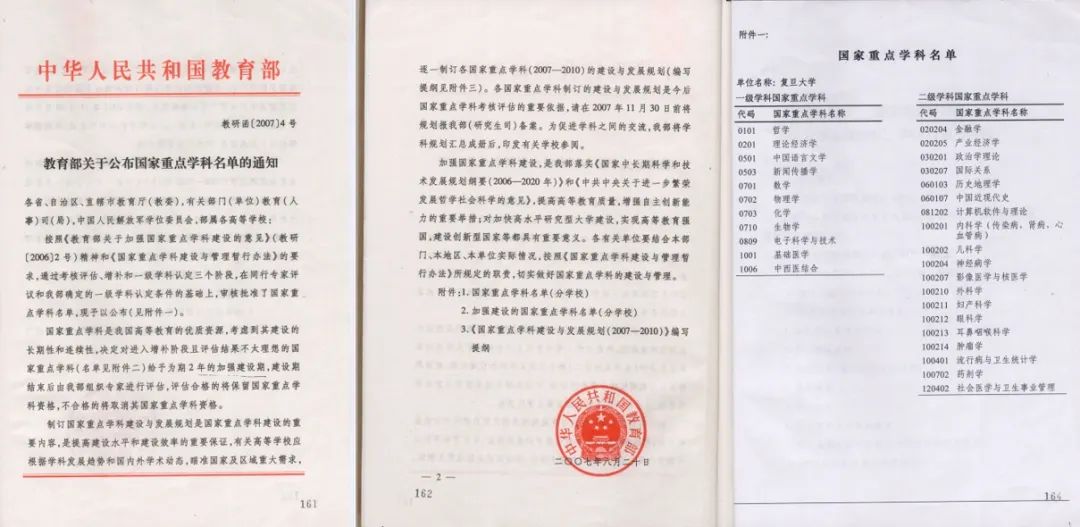 中华人民共和国教育部
教研函〔2007〕4号
教育部关于公布国家重点学科名单的通知
各省、自治区、直辖市教育厅(教委),有关部门(单位)教育(人
事)司(局),中国人民解放军学位委员会,部属各高等学校:
按照《教育部关于加强国家重点学科建设的意见》(教研
〔2006〕2号)精神和《国家重点学科建设与管理暂行办法》的要
求,通过考核评估、增补和一级学科认定三个阶段,在同行专家评
议和我部确定的一级学科认定条件的基础上,审核批准了国家重
点学科名单,现予以公布(见附件一)。
国家重点学科是我国高等教育的优质资源,考虑到其建设的
长期性和连续性,决定对进入增补阶段且评估结果不大理想的国
家重点学科(名单见附件二)给予为期2年的加强建设期,建设期
结束后由我部组织专家进行评估,评估合格的将保留国家重点学
科资格,不合格的将取消其国家重点学科资格。
制订国家重点学科建设与发展规划是国家重点学科建设的重
要内容,是提高建设水平和建设效率的重要保证,有关高等学校应
根据学科发展趋势和国内外学术动态,瞄准国家及区域重大需求,
161
逐一制订各国家重点学科(2007—2010)的建设与发展规划(编写
提纲见附件三)。各国家重点学科制订的建设与发展规划是今后
国家重点学科考核评估的重要依据,请在2007年11月30日前将
规划报我部(研究生司)备案。为促进学科之间的交流,我部将学
科规划汇总成册后,印发有关学校参阅。
加强国家重点学科建设,是我部落实《国家中长期科学和技
术发展规划纲要(2006—2020年)》和《中共中央关于进一步繁荣
发展哲学社会科学的意见》,提高高等教育质量,增强自主创新能
力的重要举措;对加快高水平研究型大学建设,实现高等教育强
国,建设创新型国家等都具有重要意义。各有关单位要结合本部
门、本地区、本单位实际情况,按照《国家重点学科建设与管理暂
行办法》所规定的职责,切实做好国家重点学科的建设与管理。
附件:1.国家重点学科名单(分学校)
2.加强建设的国家重点学科名单(分学校)
3.《国家重点学科建设与发展规划(2007—2010)》编写
提纲
中华人民共和国教育部
二〇〇七年八月二十日
— 2 —
162
附件一:
国家重点学科名单
单位名称:复旦大学
一级学科国家重点学科
代码 国家重点学科名称
0101 哲学
0201 理论经济学
0501 中国语言文学
0503 新闻传播学
0701 数学
0702 物理学
0703 化学
0710 生物学
0809 电子科学与技术
1001 基础医学
1006 中西医结合
二级学科国家重点学科
代码 国家重点学科名称
020204 金融学
020205 产业经济学
030201 政治学理论
030207 国际关系
060103 历史地理学
060107 中国近现代史
081202 计算机软件与理论
100201 内科学(传染病,肾病,心
血管病)
100202 儿科学
100204 神经病学
100207 影像医学与核医学
100210 外科学
100211 妇产科学
100212 眼科学
100213 耳鼻咽喉科学
100214 肿瘤学
100401 流行病与卫生统计学
100702 药剂学
120402 社会医学与卫生事业管理
164